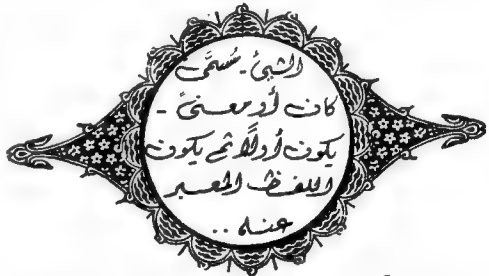 الشيئ - مُسمَّى
كان أو معنىً -
يكون أولاً ثم يكون
اللفظ المعبر
عنه ..